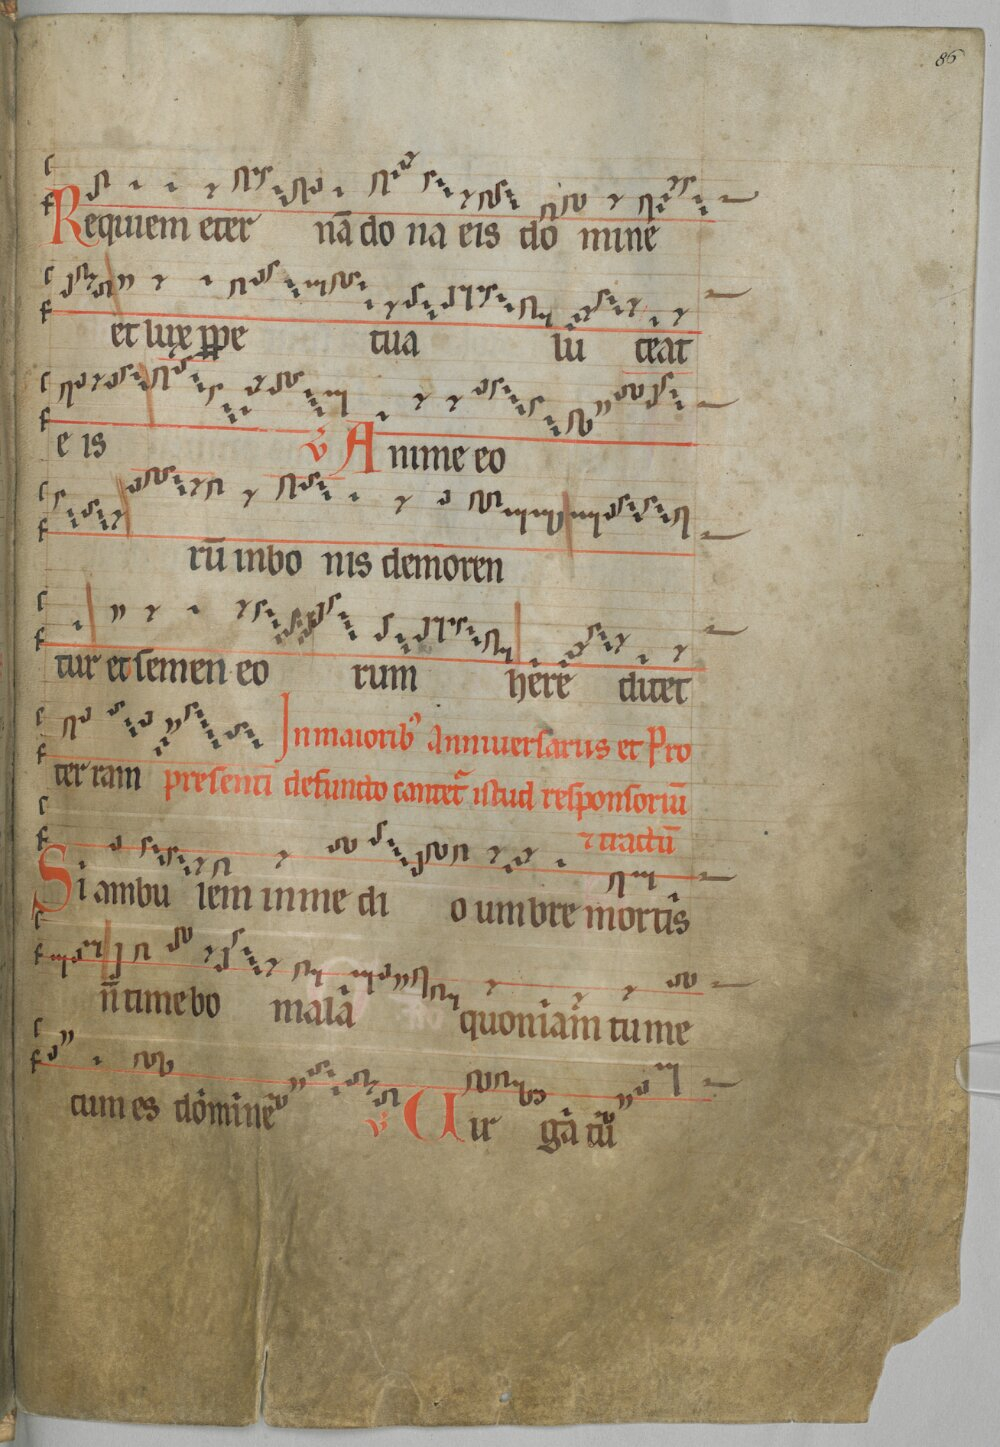 86
Requiem eter nā do na eis do mine
et lux ꝑpe tua lu ceat
e is ℣ Anime eo
rū in bo nis demoren
tur et semen eo rum here ditet
ter ram In maiorib' Anniuersariis et Pro
presenti defuncto cantet᷑ istud responsoriū
⁊ tractū
Si ambu lem in me di o umbre mortis
n̄ timebo mala quoniam tu me
cum es domine ℣ Uir ga tu